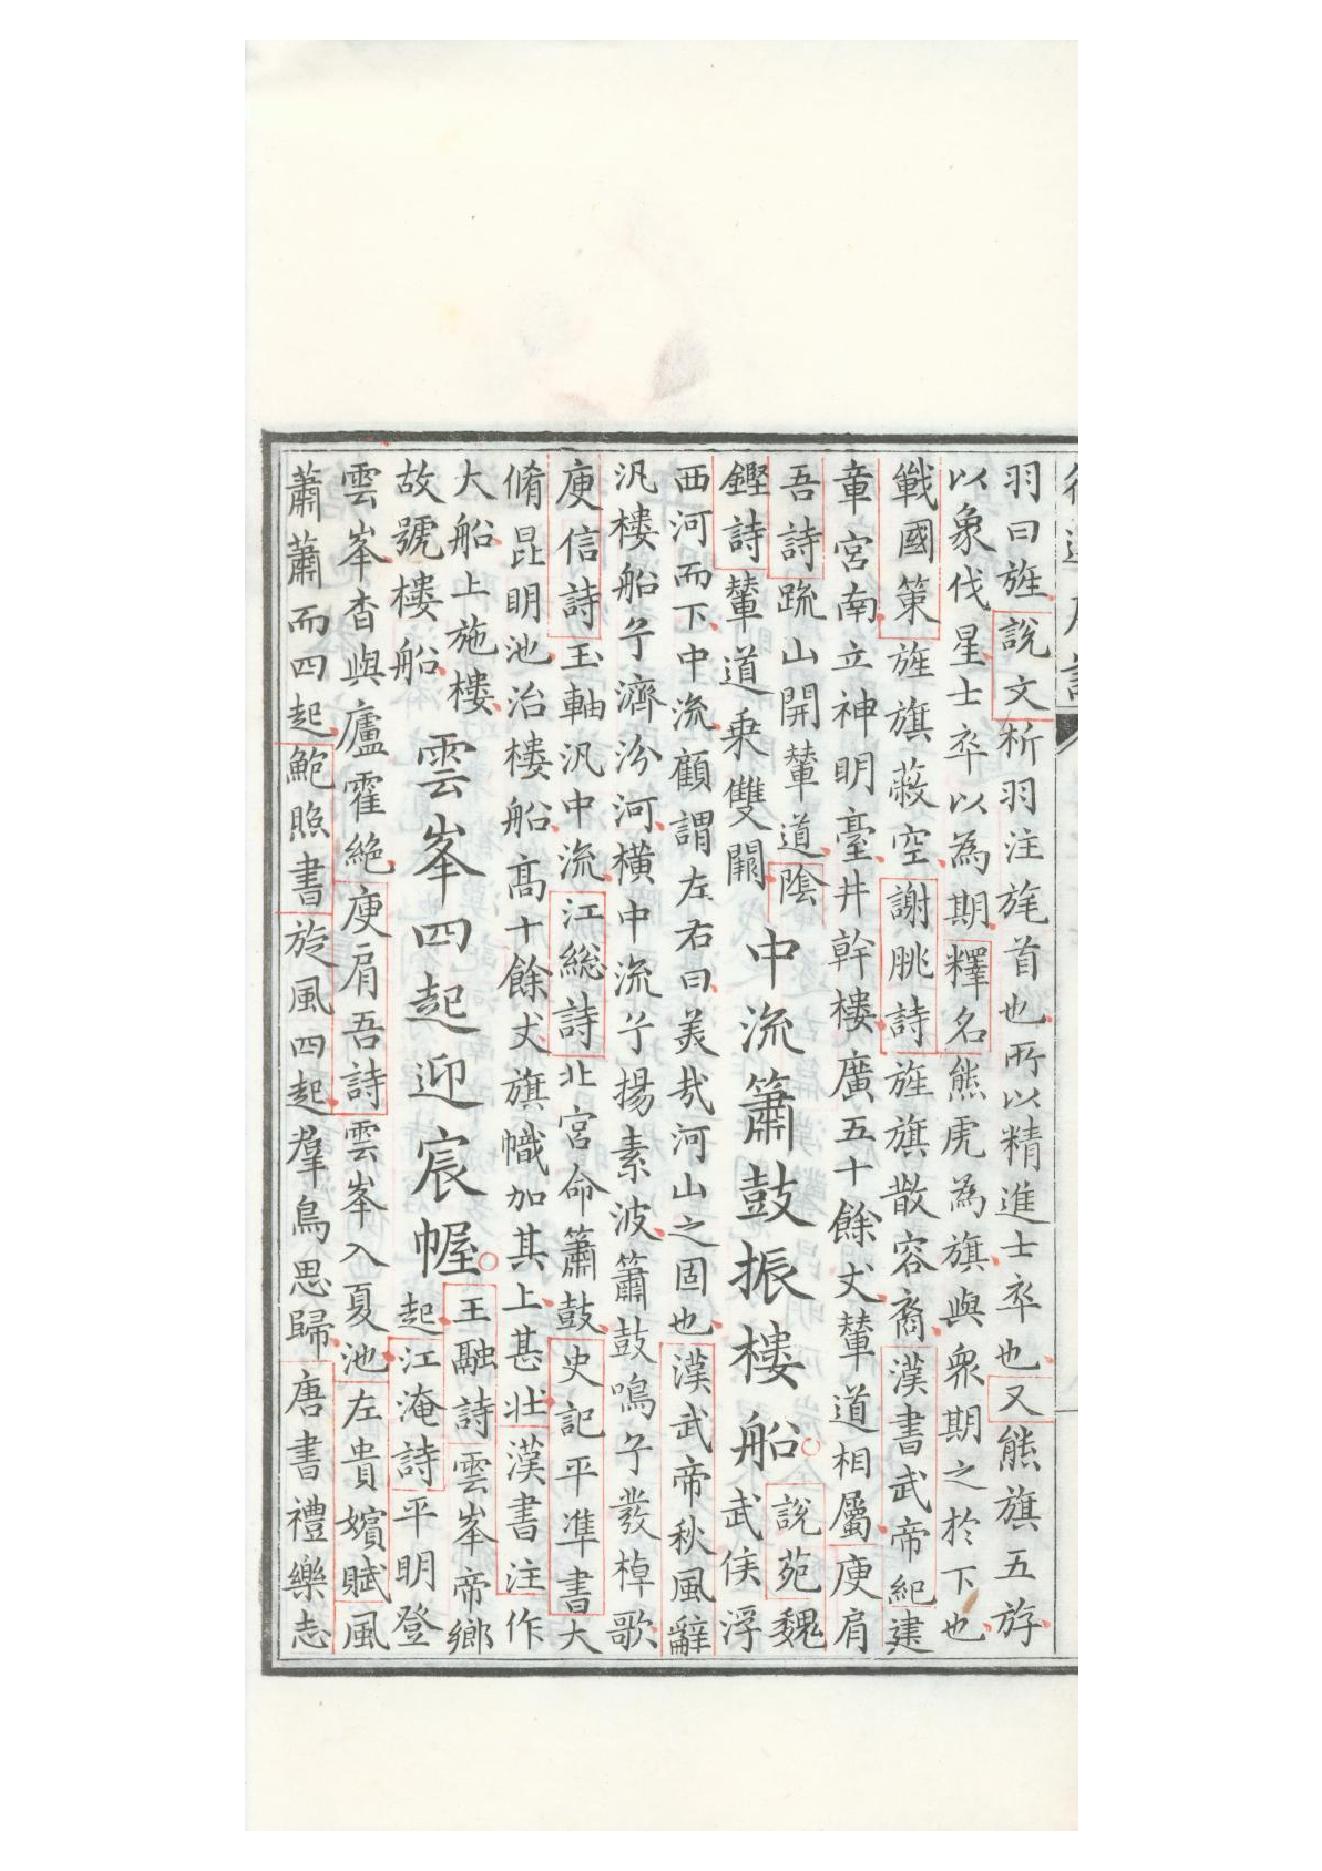 羽曰旌說文析羽注旄首也所以精進士卒也又熊旗五斿
以象伐星士卒以為期釋名熊虎為旗與衆期之於下也
戰國策旌旗蔽空謝朓詩旌旗散容裔漢書武帝紀建
章宮南立神明臺井幹樓廣五十餘丈輦道相屬庾肩
吾詩疏山開輦道陰
鏗詩輦道乗雙闕
中流簫鼓振樓船
說苑魏
武侯浮
西河而下中流顧謂左右曰美哉河山之固也漢武帝秋風辭
汎樓船兮濟汾河橫中流兮揚素波簫鼓鳴兮發棹歌
庾信詩玉軸汎中流江総詩北宮命簫鼓史記平準書大
脩昆明池治樓船高十餘丈旗幟加其上甚壯漢書注作
大船上施樓
故號樓船
雲峯四起迎宸幄
王融詩雲峯帝鄉
起江淹詩平明登
雲峯杳與廬霍絶庾肩吾詩雲峯入夏池左貴嬪賦風
蕭蕭而四起鮑照書旋風四起羣鳥思歸唐書禮樂志